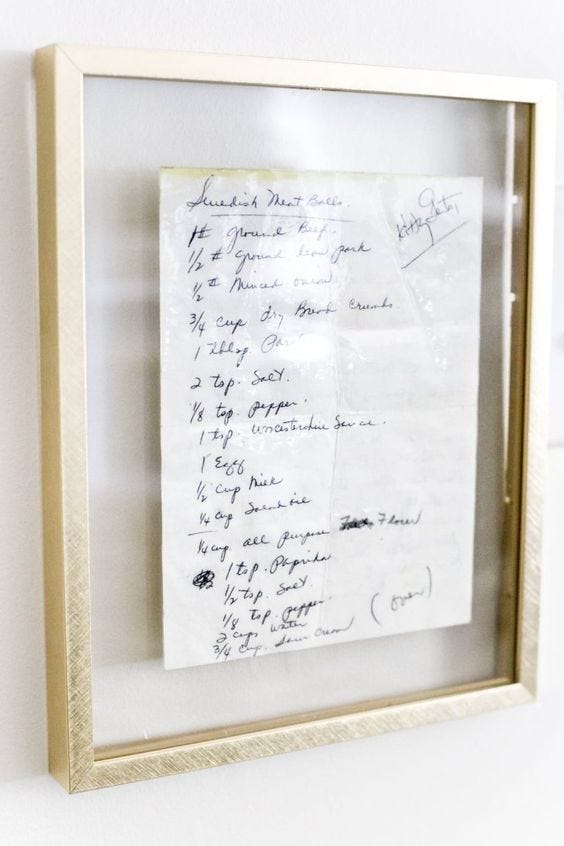 Swedish Meat Balls.
1# ground Beef.
1/2 # ground lean pork
1/2 # Minced onion
3/4 cup dry Bread Crumbs
1 tblsp
2 tsp. Salt.
1/8 tsp. pepper.
1 tsp. Worcestershire Sauce.
1 Egg
1/2 cup Milk
1/4 cup Salad oil
1/4 cup. all purpose Flour
1 tsp. Paprika
1/2 tsp. Salt.
1/8 tsp. pepper.
2 cups water
3/4 cup. Sour Cream
(over)